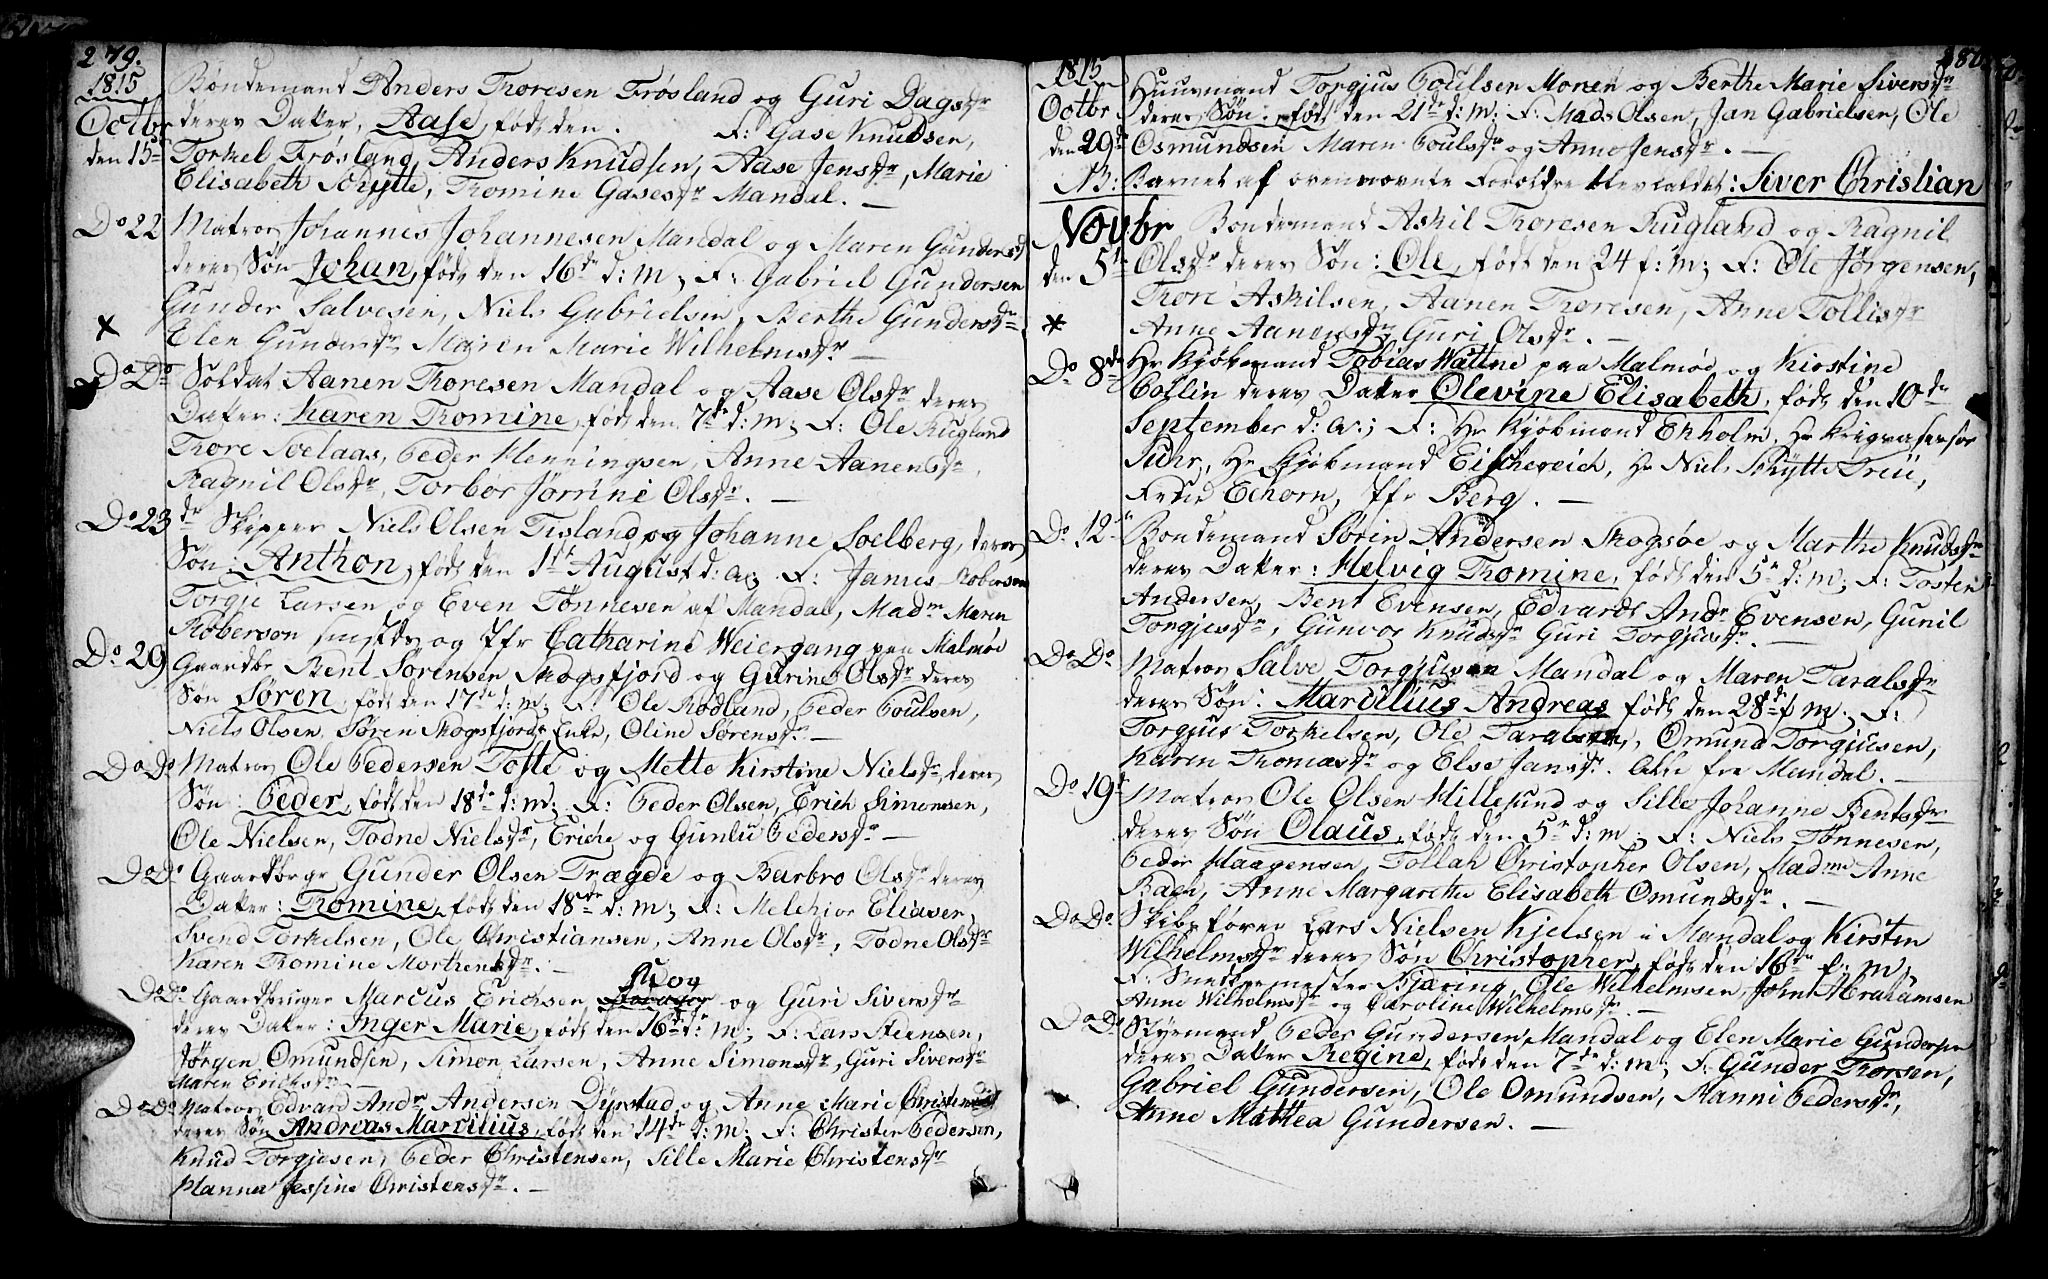 279.
1815
Octbr
den 15de
Bondemand Anders Thoresen Frøsland og Guri Dagsdr
deres Datter, Aase, født den . F: Gase Knudsen,
Torkel Frøsland, Anders Knudsen, Aase Jensdr, Marie
Elisabeth Schytte, Thomine Gasesdr Mandal. —
Do 22 Matros Johannes Johannesen Mandal og Maren Gundersd
deres Søn Johan, født den 16de d: m; F: Gabriel Gundersen
Gunder Salvesen, Niels Gabrielsen, Berthe Gundersdr
Elen Gundersdr Maren Marie Wilhelmsdr —
Do Do Soldat Aanen Thoresen Mandal og Aase Olsdr deres
Datter: Karen Thomine, født den 7de d: m; F: Ole Rugland
Thore Soelaas, Peder Henningsen, Anne Aanensdr,
Ragnil Olsdr, Torbor Jørrine Olsdr. —
Do 23de Skipper Niels Olsen Tisland, og Johanne Soelberg, deres
Søn: Anthon, født den 1st August d: a; F: James Roberson
Torgje Larsen og Even Tønnesen af Mandal, Madm Maren
Roberson sammestds og Jfr Catharine Weiergang paa Malmøe
Do 29 Gaardbr Bent Sørensen Skogsfjord og Gurine Olsdr deres
Søn Søren, født den 17de d: m; F: Ole Rødland, Peder Poulsen,
Niels Olsen, Søren Skogsfjords Enke, Oline Sørensdr. —
Do Do Matros Ole Pedersen Tofte og Mette Kirstine Nielsdr, deres
Søn: Peder, født den 18de d: m; F: Peder Olsen, Erich Simonsen,
Ole Nielsen, Todne Nielsdr, Eriche og Gunlu Pedersdr —
Do Do Gaardbrgr Gunder Olsen Trægde og Barbro Olsdr deres
Datter: Thomine, født den 18de d: m; F: Melchior Eliasen,
Svend Torkelsen, Ole Christiansen, Anne Olsdr, Todne Olsdr
Karen Thomine Morthensdr. —
Do Do Gaardbruger Marcus Erichsen Udog og Guri Siversdr
deres Datter: Inger Marie, født den 16de d: m; F: Lars Steensen,
Jørgen Omundsen, Simon Larsen, Anne Simonsdr, Guri Siversdr
Maren Erichsdr —
Do Do Matros Edvard Andr Andersen Dyrstad og Anne Marie Christensd
deres Søn Andreas Marcilius, født den 14de d: m; F: Christen Pedersen,
Knud Torgjesen, Peder Christensen, Sille Marie Christensdr
Hanna Jessine Christensdr. —
280.
1815
Octbr
den 29de
Huusmand Torgjus Poulsen Monen og Berthe Marie Siversdr
deres Søn: født den 21de d: m; F: Mads Olsen, Jan Gabrielsen, Ole
Osmundsen Maren Poulsdr og Anne Jensdr. —
NB: Barnet af ovennævnte Forældre blev kaldet: Siver Christian
Novbr
den 5te
Bondemand Askil Thoresen Rugland og Ragnil
Olsdr deres Søn: Ole, født den 24 f: m; F: Ole Jørgensen,
Thore Askilsen, Aanen Thoresen, Anne Tollisdr
Anne Aanensdr, Guri Olsdr. —
Do 8de Hr Kjøbmand Tobias Wattne paa Malmøe og Kirstine
Collin deres Datter Olevine Elisabeth, født den 10de
September d: a:; F: Hr Kjøbmand Ekholm, Hr Krigsassessor
Suhr, Hr Kjøbmand Eischereich, Hr Niels Schytte Treu,
Frue Echorn, Jfr Berg. —
Do 12te Bondemand Sørin Andersen Skogsøe og Marthe Knudsdr
deres Datter: Helvig Thomine, født den 5te d: m; F: Tosten
Andersen, Bent Evensen, Edvardt Andr Evensen, Gunil
Torgjesdr, Gunvor Knudsdr Guri Torgjusdr. —
Do Do Matros Salve Torgjusen Mandal og Maren Taralsdr
deres Søn: Marcilius Andreas født den 28de f. m. F:
Torgjus Torkelsen, Ole Taralsen, Omund Torgjusen,
Karen Thomasdr og Else Jansdr. Alle fra Mandal. —
Do 19de Matros Ole Olsen Hillesund og Sille Johanne Bentsdr
deres Søn Olaus, født den 5te d: m; F: Niels Tønnesen,
Peder Haagensen, Tollak Christopher Olsen, Madme Anne
Bach, Anne Margarethe Elisabeth Omundsdr. —
Do Do Skibsfører Lars Nielsen Kjelsen i Mandal og Kirsten
Wilhelmsdr deres Søn Christopher, født den 16de f. m,
F: Snedkermester Bjøring, Ole Wilhelmsen, John Abrahamsen
Anne Wilhelmsdr og Caroline Wilhelmsdr. —
Do Do Styrmand Peder Gundersen, Mandal og Elen Marie Gundersen
deres Datter Regine, født den 7de d: m; F: Gunder Thorsen,
Gabriel Gundersen, Ole Omundsen, Hanni Pedersdr,
Anne Mathea Gundersen. —